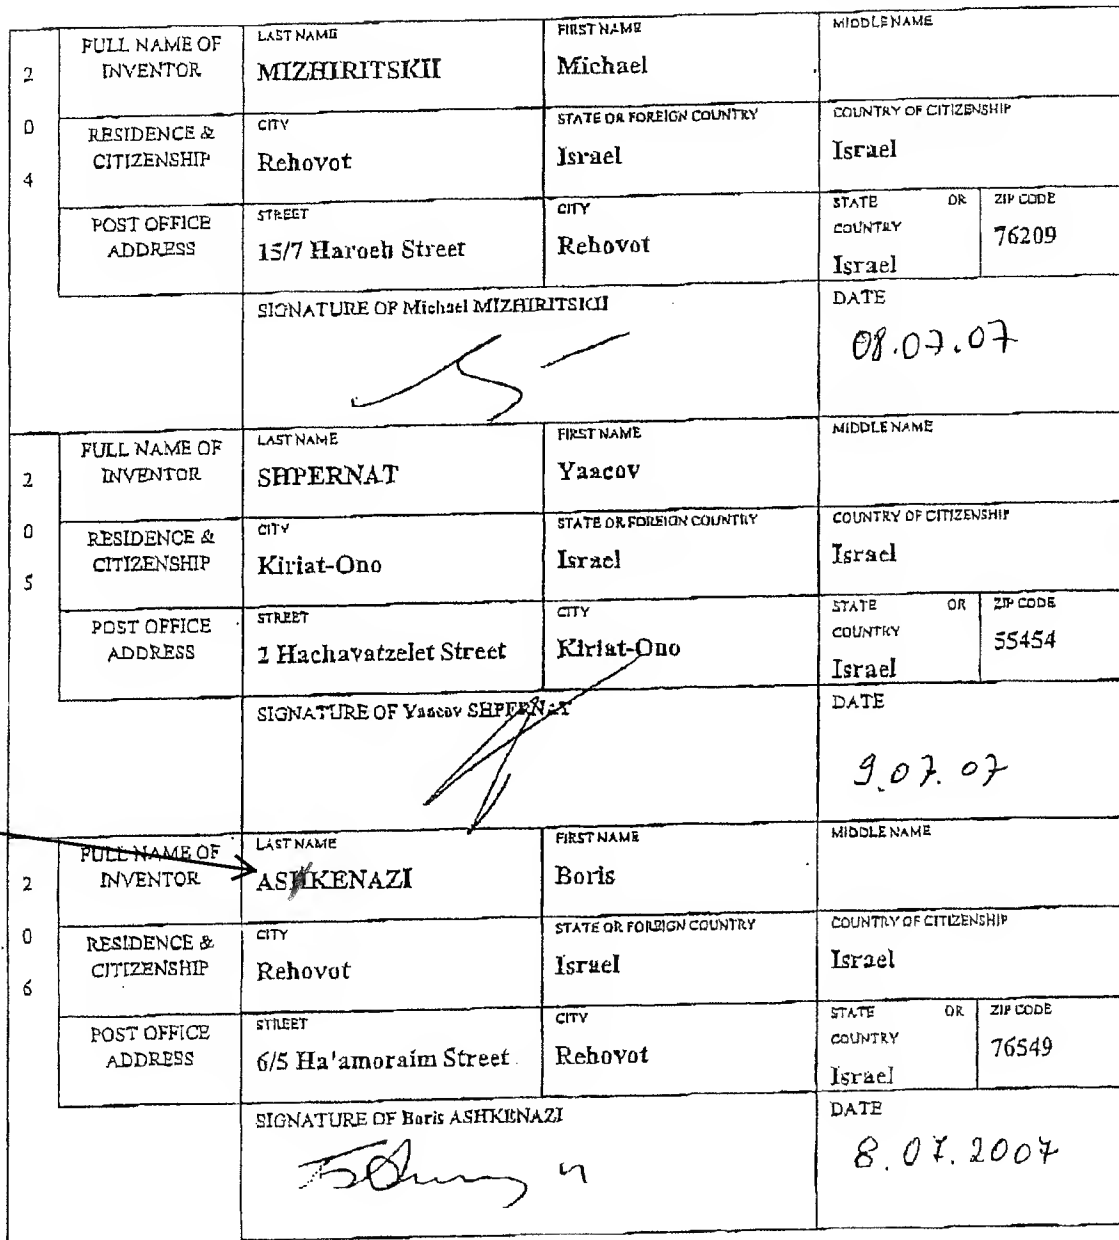 204
FULL NAME OF INVENTOR
LAST NAME
MIZHIRITSKII
FIRST NAME
Michael
MIDDLE NAME
RESIDENCE & CITIZENSHIP
CITY
Rehovot
STATE OR FOREIGN COUNTRY
Israel
COUNTRY OF CITIZENSHIP
Israel
POST OFFICE ADDRESS
STREET
15/7 Haroeh Street
CITY
Rehovot
STATE OR COUNTRY
Israel
ZIP CODE
76209
SIGNATURE OF Michael MIZHIRITSKII
DATE
08.07.07
205
FULL NAME OF INVENTOR
LAST NAME
SHPERNAT
FIRST NAME
Yaacov
MIDDLE NAME
RESIDENCE & CITIZENSHIP
CITY
Kiriat-Ono
STATE OR FOREIGN COUNTRY
Israel
COUNTRY OF CITIZENSHIP
Israel
POST OFFICE ADDRESS
STREET
2 Hachavatzelet Street
CITY
Kiriat-Ono
STATE OR COUNTRY
Israel
ZIP CODE
55454
SIGNATURE OF Yaacov SHPERNAT
DATE
9.07.07
206
FULL NAME OF INVENTOR
LAST NAME
ASHKENAZI
FIRST NAME
Boris
MIDDLE NAME
RESIDENCE & CITIZENSHIP
CITY
Rehovot
STATE OR FOREIGN COUNTRY
Israel
COUNTRY OF CITIZENSHIP
Israel
POST OFFICE ADDRESS
STREET
6/5 Ha'amoraim Street
CITY
Rehovot
STATE OR COUNTRY
Israel
ZIP CODE
76549
SIGNATURE OF Boris ASHKENAZI
DATE
8.07.2007